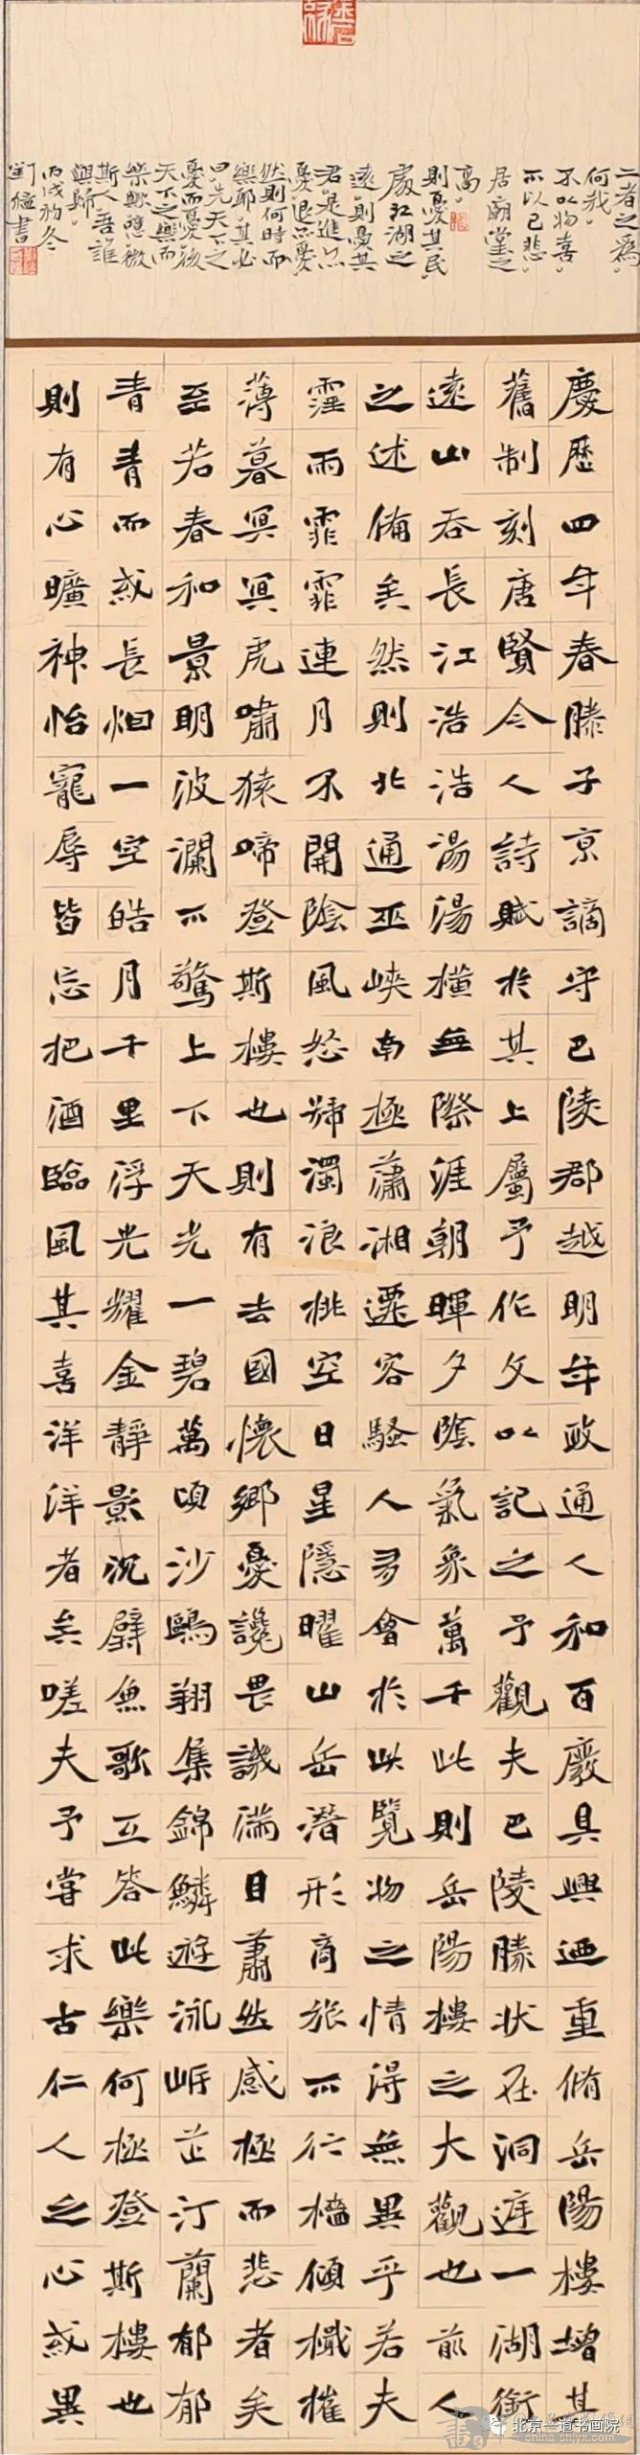 慶歷四年春滕子京謫守巴陵郡越明年政通人和百廢具興迺重脩岳陽樓增其
舊制刻唐賢今人詩賦於其上屬予作文以記之予觀夫巴陵勝狀在洞庭一湖銜
遠山吞長江浩浩湯湯橫無際涯朝暉夕陰氣象萬千此則岳陽樓之大觀也前人
之述備矣然則北通巫峽南極瀟湘遷客騷人多會於此覽物之情得無異乎若夫
霪雨霏霏連月不開陰風怒號濁浪排空日星隱曜山岳潛形商旅不行檣傾檝摧
薄暮冥冥虎嘯猿啼登斯樓也則有去國懷鄉憂讒畏譏滿目蕭然感極而悲者矣
至若春和景明波瀾不驚上下天光一碧萬頃沙鷗翔集錦鱗遊泳岸芷汀蘭郁郁
青青而或長烟一空皓月千里浮光耀金靜影沉璧漁歌互答此樂何極登斯樓也
則有心曠神怡寵辱皆忘把酒臨風其喜洋洋者矣嗟夫予嘗求古仁人之心或異
二者之為
何哉
不以物喜
不以己悲
居廟堂之
高
則憂其民
處江湖之
遠則憂其
君是進亦
憂退亦憂
然則何時而
樂耶其必
曰先天下之
憂而憂後
天下之樂而
樂歟噫微
斯人吾誰
與歸
丙戌初冬
書
北京三道书画院
china.shjyx.com